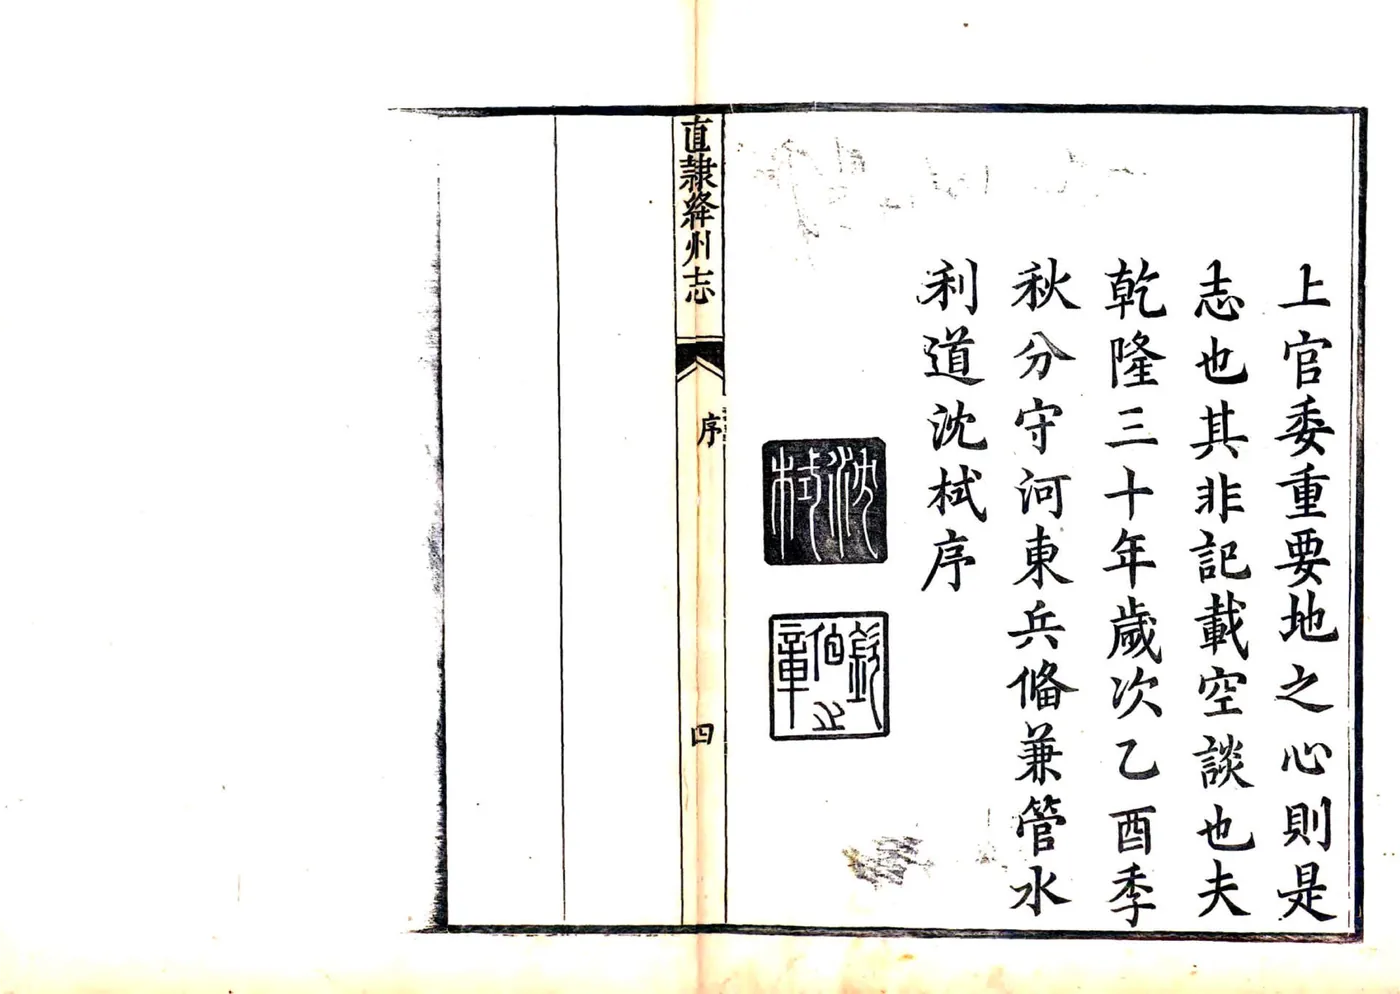 上官委重要地之心則是
志也其非記載空談也夫
乾隆三十年歲次乙酉季
秋分守河東兵備兼管水
利道沈栻序
沈栻
欽伯之章
直隸絳州志
序
四